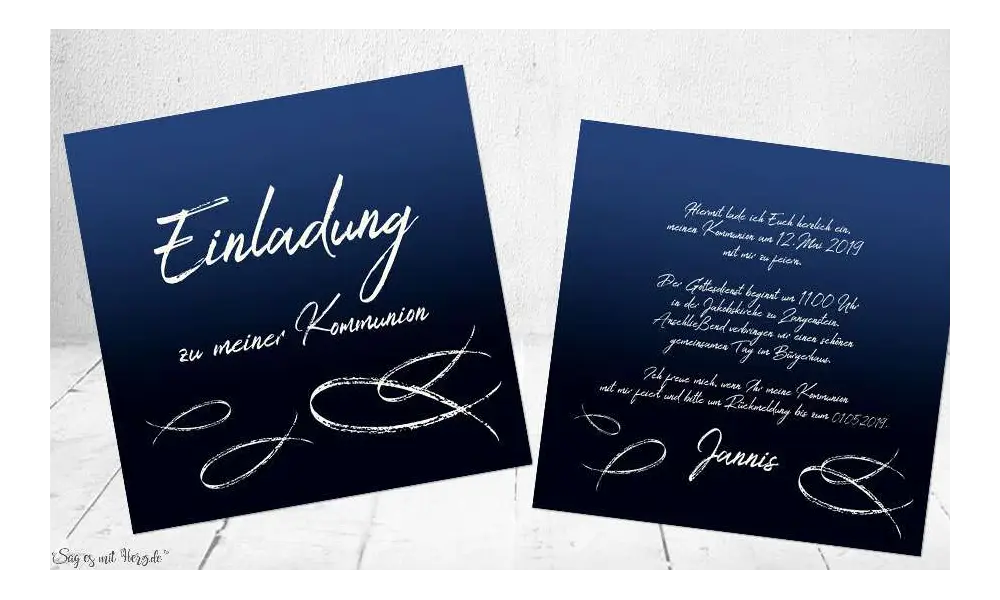 Einladung
zu meiner Kommunion
Hiermit lade ich Euch herzlich ein,
meinen Kommunion am 12. Mai 2019
mit mir zu feiern.
Der Gottesdienst beginnt um 11.00 Uhr
in der Jakobskirche zu Zangenstein.
Anschließend verbringen wir einen schönen
gemeinsamen Tag im Bürgerhaus.
Ich freue mich, wenn Ihr meine Kommunion
mit mir feiert und bitte um Rückmeldung bis zum 01.05.2019.
Jannis
Sag es mit Herz.de